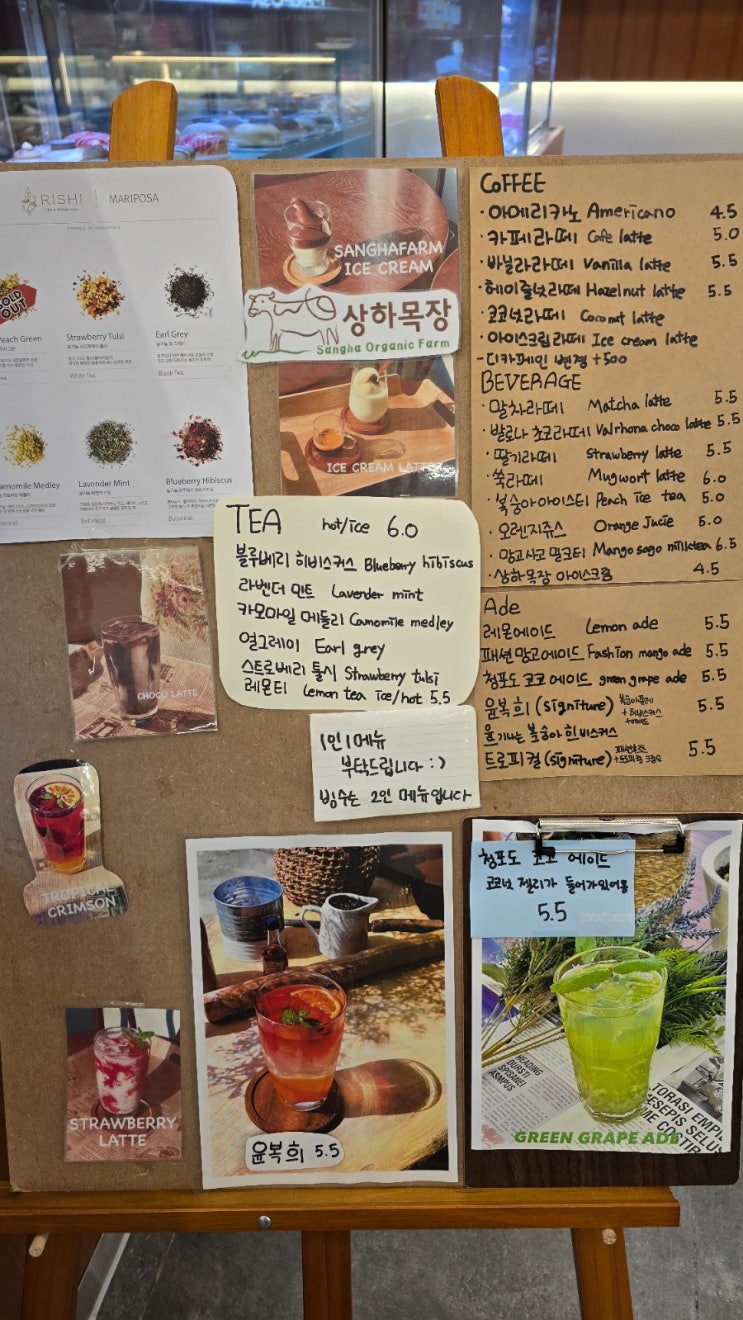 RISHI
MARIPOSA
SOLD OUT
Peach Green
Strawberry Tulsi
Earl Grey
White Tea
Black Tea
Chamomile Medley
Lavender Mint
Blueberry Hibiscus
Botanical
Botanical
SANGHAFARM
ICE CREAM
상하목장
Sangha Organic Farm
ICE CREAM LATTE
COFFEE
· 아메리카노 Americano 4.5
· 카페라떼 Cafe latte 5.0
· 바닐라라떼 Vanilla latte 5.5
· 헤이즐넛라떼 Hazelnut latte 5.5
· 코코넛라떼 Coconut latte
· 아이스크림라떼 Ice cream latte
- 디카페인 변경 +500
BEVERAGE
· 말차라떼 Matcha latte 5.5
· 발로나 초코라떼 Valrhona choco latte 5.5
· 딸기라떼 Strawberry latte 5.5
· 쑥라떼 Mugwort latte 6.0
· 복숭아아이스티 Peach ice tea 5.0
· 오렌지쥬스 Orange Jucie 5.0
· 망고사고 밀크티 Mango sago milktea 6.5
· 상하목장 아이스크림 4.5
TEA hot/ice 6.0
블루베리 히비스커스 Blueberry hibiscus
라벤더 민트 Lavender mint
카모마일 메들리 Camomile medley
얼그레이 Earl grey
스트로베리 툴시 Strawberry tulsi
레몬티 Lemon tea ice/hot 5.5
Ade
레몬에이드 Lemon ade 5.5
패션망고에이드 Fashion mango ade 5.5
청포도 코코 에이드 green grape ade 5.5
윤복희 (signiture) 5.5
윤기나는 복숭아 히비스커스
트로피컬 (signiture) 5.5
CHOCO LATTE
1인 1메뉴
부탁드립니다 :)
빙수는 2인 메뉴입니다
TROPICAL
CRIMSON
STRAWBERRY
LATTE
윤복희 5.5
청포도 코코 에이드
코코넛 젤리가 들어가있어용
5.5
HEADING
DURSTI
SPISANEI
ASMPUS
GREEN GRAPE ADE